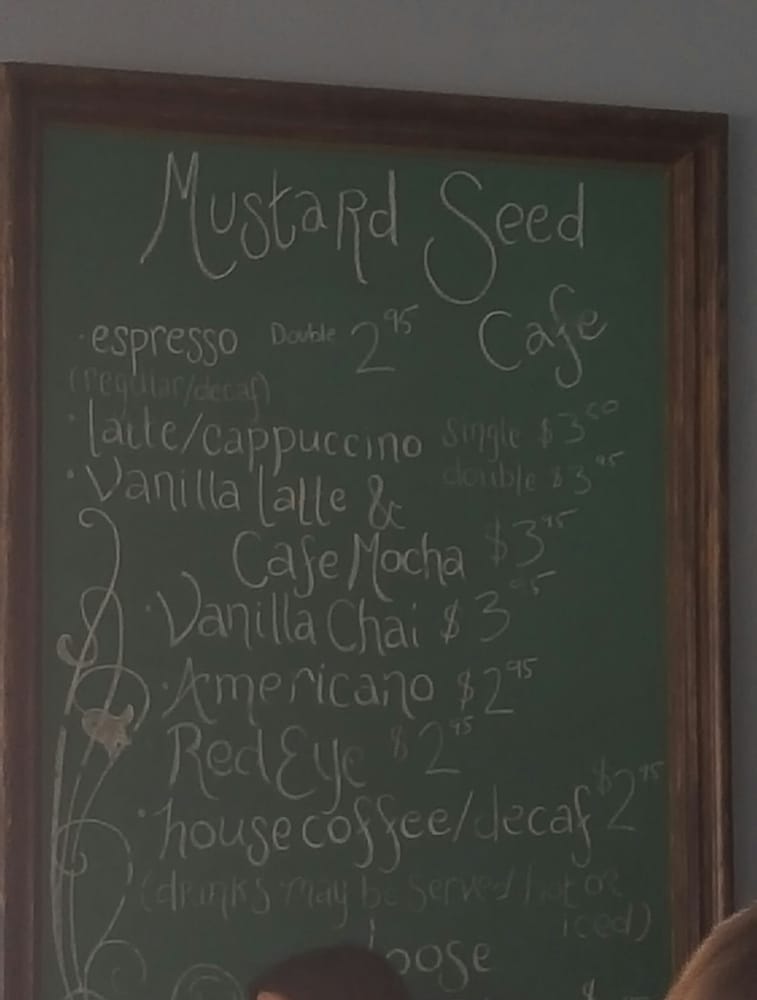 Mustard Seed
Cafe
• espresso Double 2 95
(regular/decaf)
• latte/cappuccino single $3 50
double $3 95
• Vanilla latte &
Cafe Mocha $3 95
• Vanilla Chai $3 95
• Americano $2 95
Red Eye $2 95
• house coffee/decaf $2 95
(drinks may be served hot or
iced)
loose
$